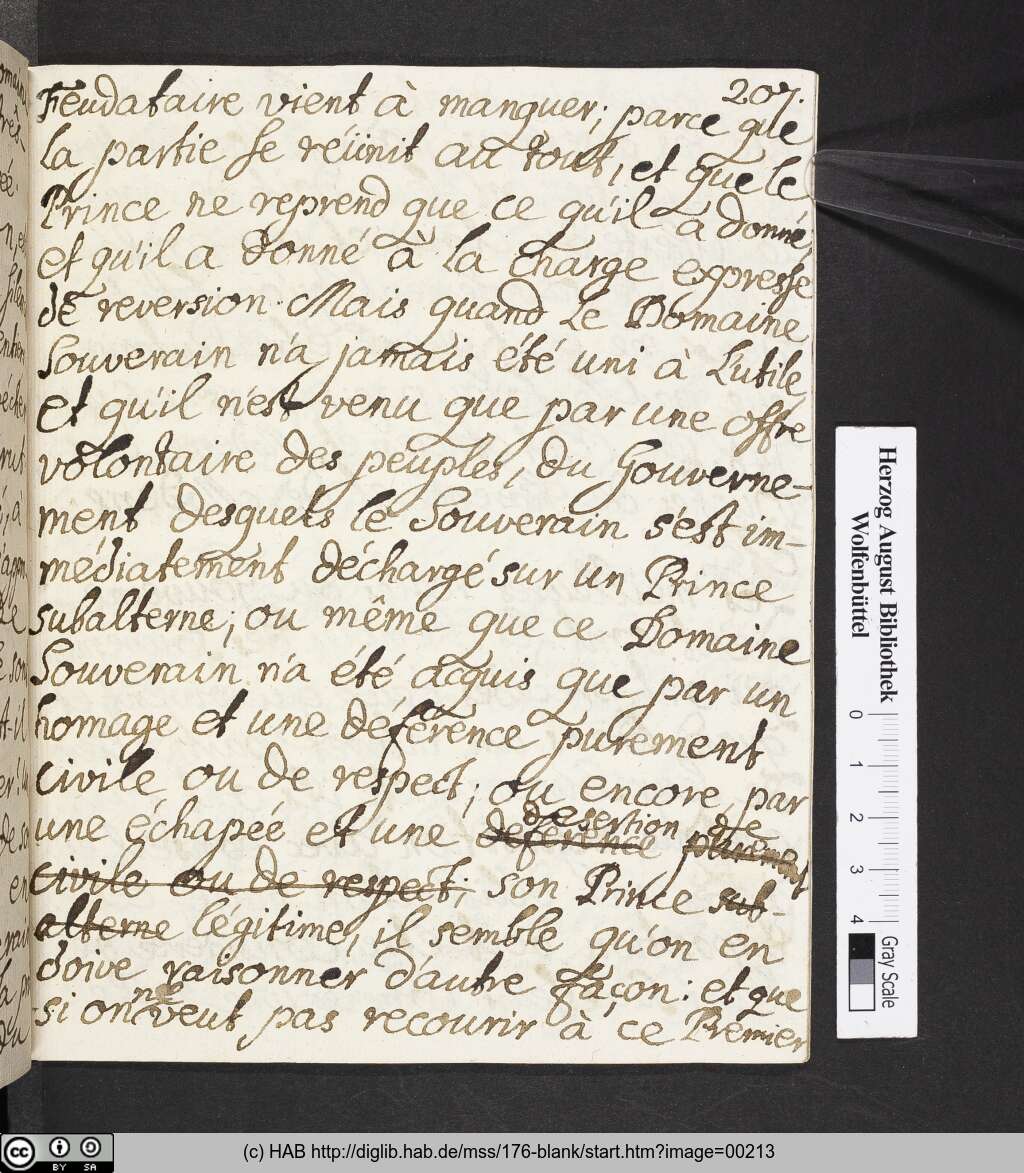 207.
Feudataire vient à manquer; parce que
la partie se réünit au tout, et que le
Prince ne reprend que ce qu'il a donné,
et qu'il a donné à la charge expresse
de reversion. Mais quand le Domaine
Souverain n'a jamais été uni à l'utile,
et qu'il n'est venu que par une offre
volontaire des peuples, du Gouverne-
ment desquels le Souverain s'est im-
médiatement déchargé sur un Prince
subalterne; ou même que ce Domaine
Souverain n'a été acquis que par un
homage et une déférence purement
civile ou de respect; ou encore par
une échapée et une deference desertion de purement
civile ou de respect; son Prince sub-
alterne légitime, il semble qu'on en
doive raisonner d'autre façon: et que
si on ne veut pas recourir à ce Premier
Herzog August Bibliothek
Wolfenbüttel
0 1 2 3 4 Gray Scale
cc BY SA
(c) HAB http://diglib.hab.de/mss/176-blank/start.htm?image=00213